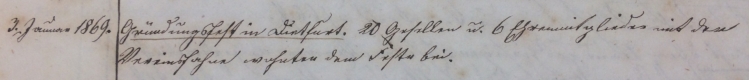 3. Januar 1869. Gründungsfest in Dietfurt. 20 Gesellen u. 6 Ehrenmitglieder mit der
Vereinsfahne wohnten dem Feste bei.